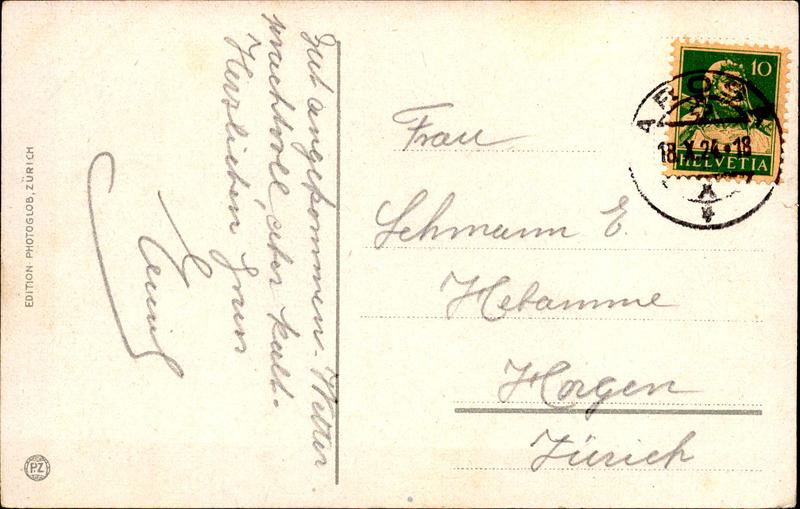 Gut angekommen. Wetter
prachtvoll, aber kalt.
Herzlichen Gruss
Frau
Lehmann E.
Hebamme
Horgen
Zürich
10
HELVETIA
AROSA
18.X.24.18
EDITION PHOTOGLOB, ZÜRICH
PZ